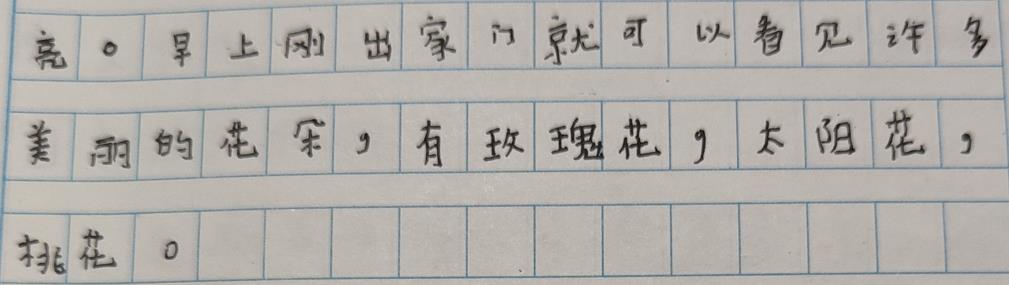 亮。早上刚出家门就可以看见许多
美丽的花朵，有玫瑰花，太阳花，
桃花。